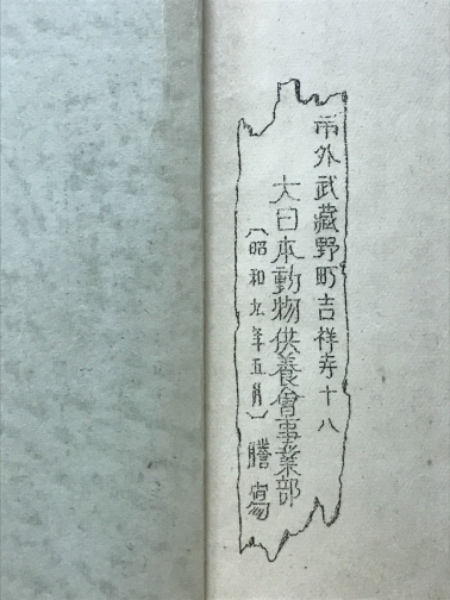 市外武藏野町吉祥寺十八
大日本動物供養會事業部
(昭和九年五月) 謄寫